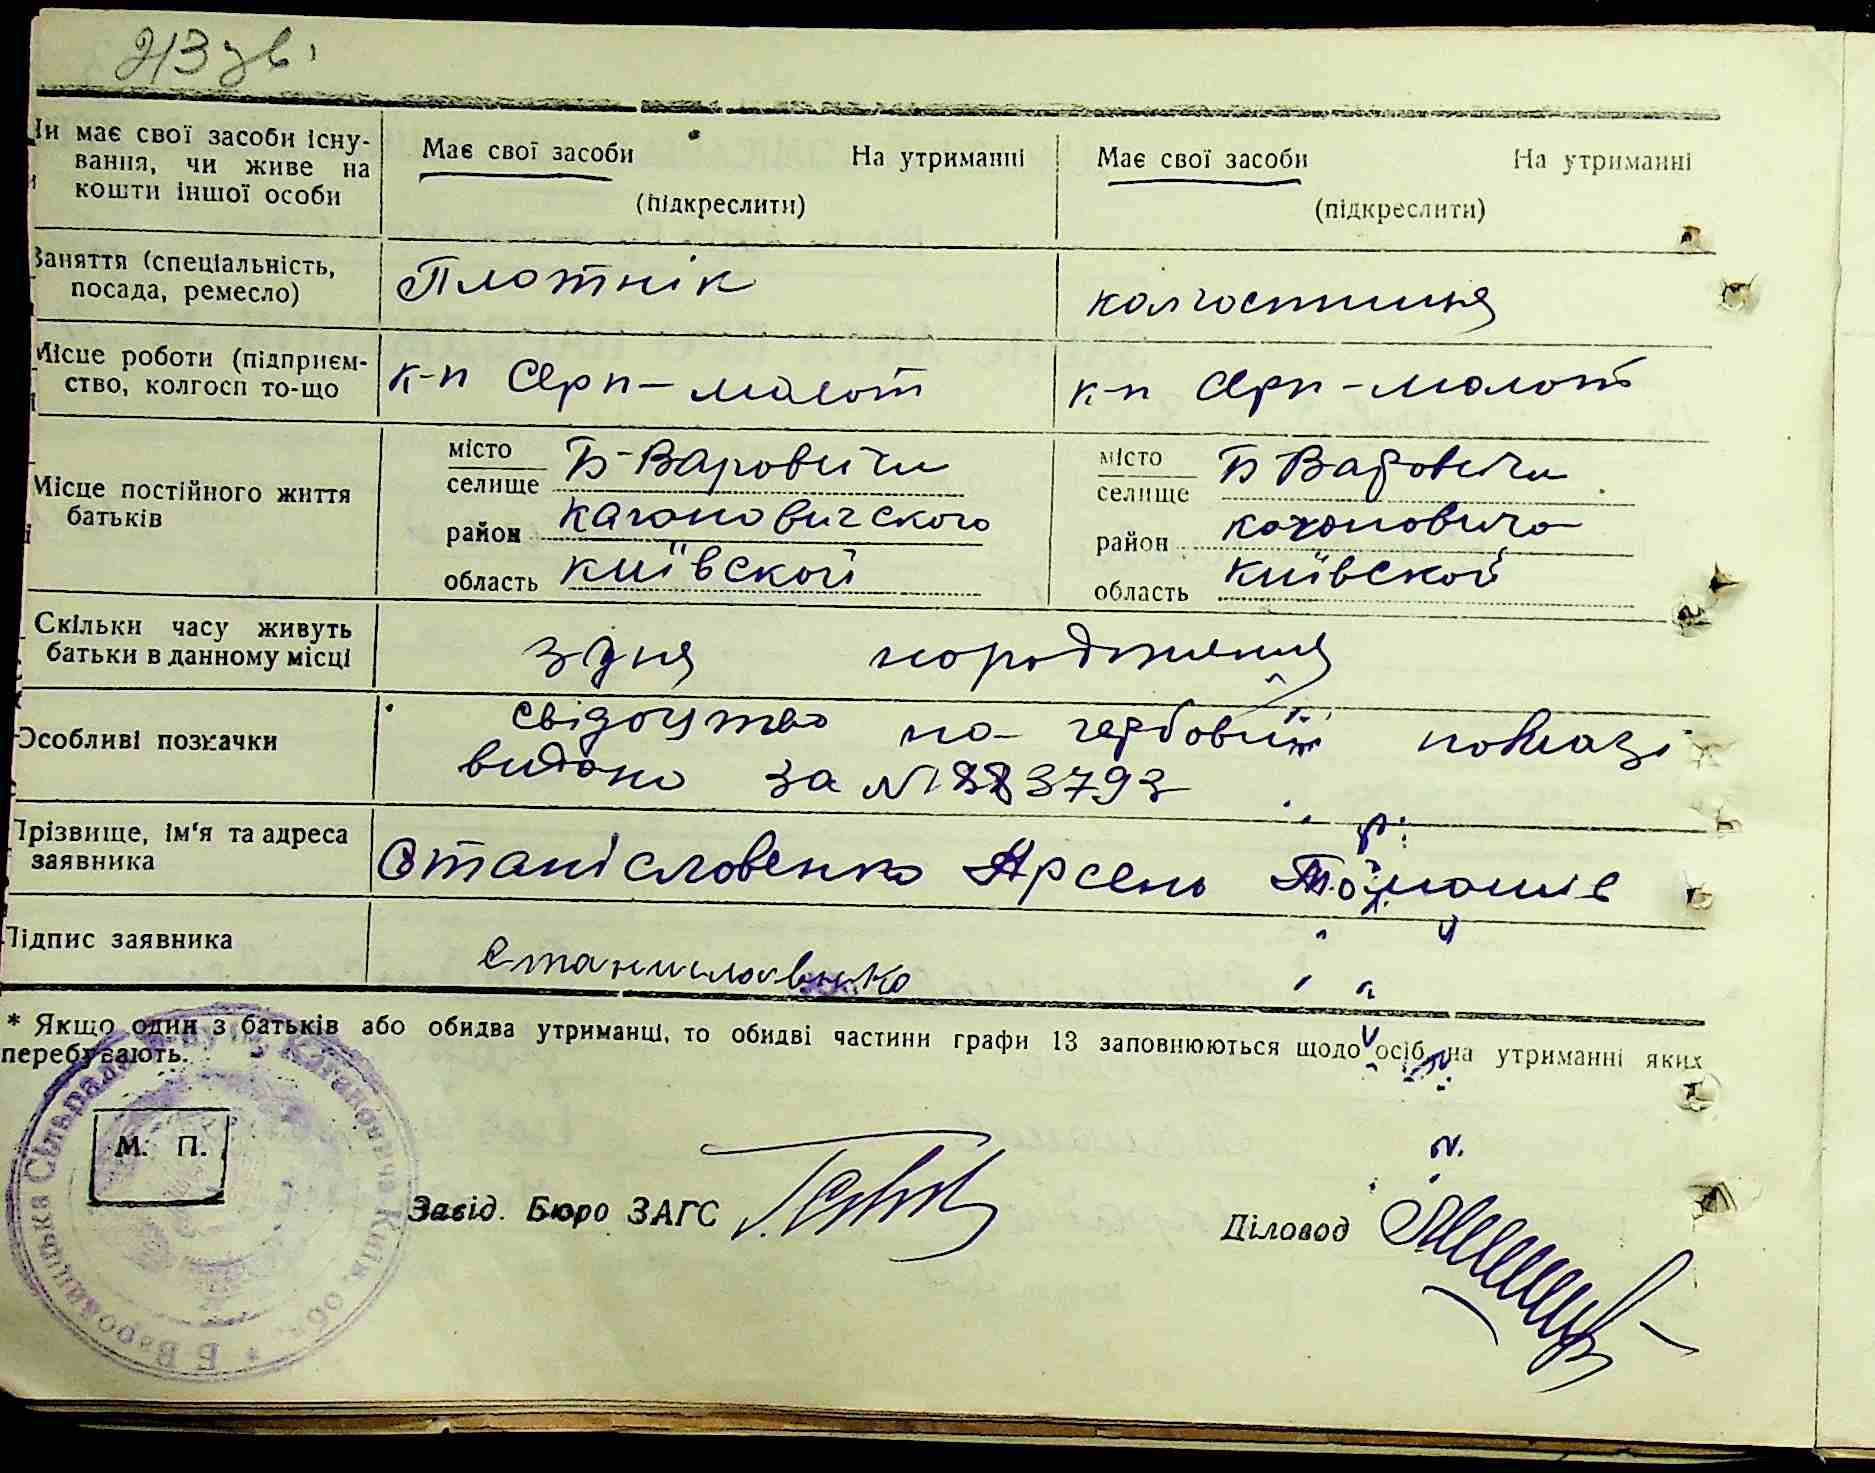 213 зв.
Чи має свої засоби існу-
вання, чи живе на
кошти іншої особи
Має свої засоби На утриманні
(підкреслити)
Має свої засоби На утриманні
(підкреслити)
Заняття (спеціальність,
посада, ремесло)
Плотнік
колгоспниця
Місце роботи (підприєм-
ство, колгосп то-що
к-п Серп-молот
к-п Серп-молот
Місце постійного життя
батьків
місто
селище Б-Варовичи
район Кагановичского
область Київской
місто
селище Б Варовичи
район Кагановича
область Київской
Скільки часу живуть
батьки в данному місці
з дня народження
Особливі позначки
свідоцтво на гербовій
видано за №
Прізвище, ім'я та адреса
заявника
Станісловенко Арсень
Підпис заявника
Станиславенко
* Якщо один з батьків або обидва утриманці, то обидві частини графи 13 заповнюються щодо осіб, на утриманні яких
перебувають.
М. П.
Завід. Бюро ЗАГС
Діловод